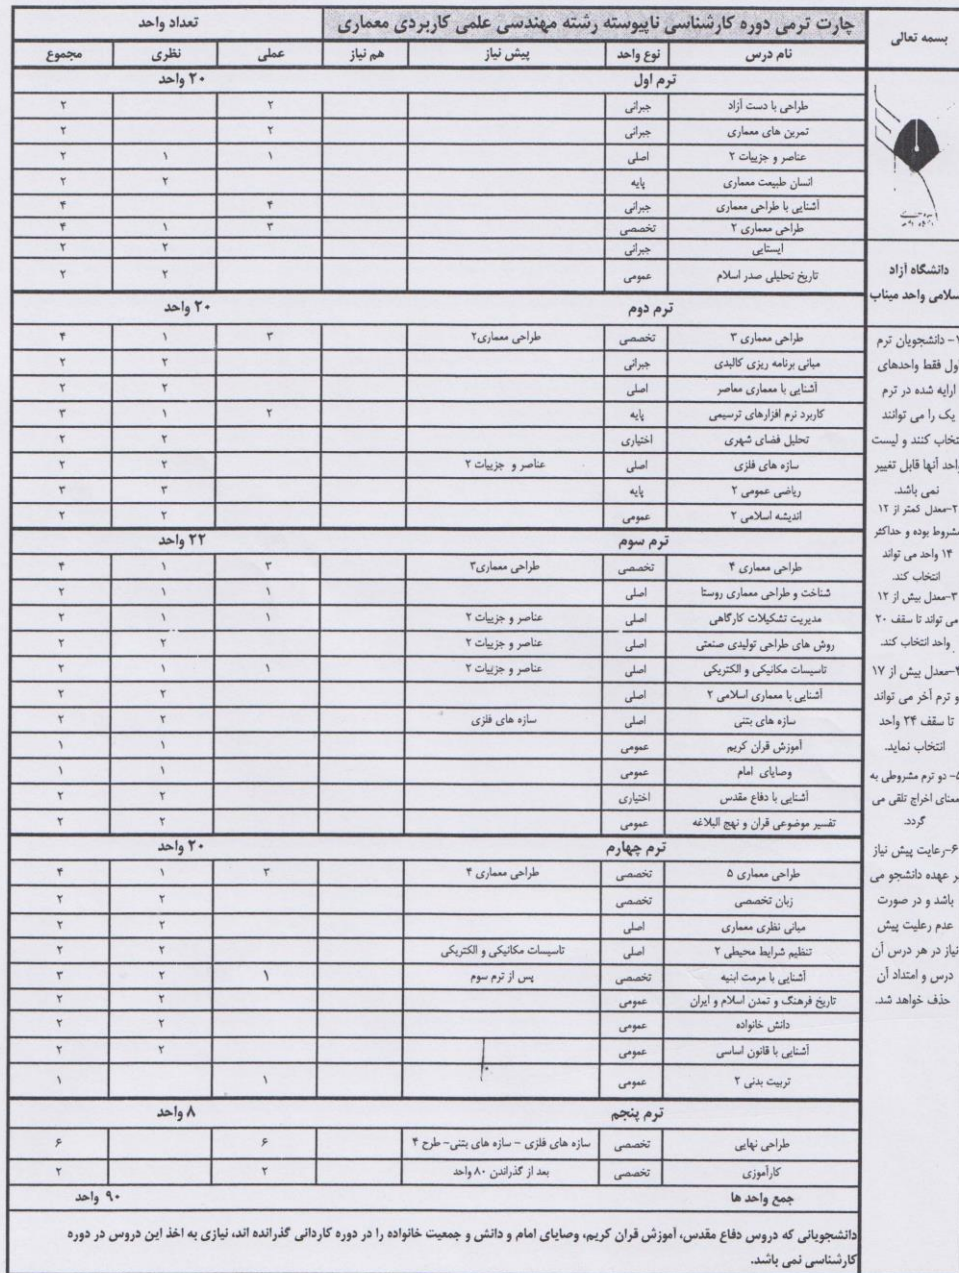 بسمه تعالی
دانشگاه آزاد
سلامی واحد میناب
۱- دانشجویان ترم
اول فقط واحدهای
ارایه شده در ترم
یک را می توانند
نتخاب کنند و لیست
واحد آنها قابل تغییر
نمی باشد.
۲-معدل کمتر از ۱۲
مشروط بوده و حداکثر
۱۴ واحد می تواند
انتخاب کند.
۳-معدل بیش از ۱۲
می تواند تا سقف ۲۰
واحد انتخاب کند.
۴-معدل بیش از ۱۷
و ترم آخر می تواند
تا سقف ۲۴ واحد
انتخاب نماید.
۵- دو ترم مشروطی به
معنای اخراج تلقی می
گردد.
۶-رعایت پیش نیاز
بر عهده دانشجو می
باشد و در صورت
عدم رعلیت پیش
نیاز در هر درس آن
درس و امتداد آن
حذف خواهد شد.
چارت ترمی دوره کارشناسی ناپیوسته رشته مهندسی علمی کاربردی معماری تعداد واحد
نام درس نوع واحد پیش نیاز هم نیاز عملی نظری مجموع
ترم اول ۲۰ واحد
طراحی با دست آزاد جبرانی ۲ ۲
تمرین های معماری جبرانی ۲ ۲
عناصر و جزییات ۲ اصلی ۱ ۱ ۲
انسان طبیعت معماری پایه ۲ ۲
آشنایی با طراحی معماری جبرانی ۴ ۴
طراحی معماری ۲ تخصصی ۳ ۱ ۴
ایستایی جبرانی ۲ ۲
تاریخ تحلیلی صدر اسلام عمومی ۲ ۲
ترم دوم ۲۰ واحد
طراحی معماری ۳ تخصصی طراحی معماری۲ ۳ ۱ ۴
مبانی برنامه ریزی کالبدی جبرانی ۲ ۲
آشنایی با معماری معاصر اصلی ۲ ۲
کاربرد نرم افزارهای ترسیمی پایه ۲ ۱ ۳
تحلیل فضای شهری اختیاری ۲ ۲
سازه های فلزی اصلی عناصر و جزییات ۲ ۲ ۲
ریاضی عمومی ۲ پایه ۳ ۳
اندیشه اسلامی ۲ عمومی ۲ ۲
ترم سوم ۲۲ واحد
طراحی معماری ۴ تخصصی طراحی معماری۳ ۳ ۱ ۴
شناخت و طراحی معماری روستا اصلی ۱ ۱ ۲
مدیریت تشکیلات کارگاهی اصلی عناصر و جزییات ۲ ۱ ۱ ۲
روش های طراحی تولیدی صنعتی اصلی عناصر و جزییات ۲ ۲ ۲
تاسیسات مکانیکی و الکتریکی اصلی عناصر و جزییات ۲ ۱ ۱ ۲
آشنایی با معماری اسلامی ۲ اصلی ۲ ۲
سازه های بتنی اصلی سازه های فلزی ۲ ۲
آموزش قران کریم عمومی ۱ ۱
وصایای امام عمومی ۱ ۱
آشنایی با دفاع مقدس اختیاری ۲ ۲
تفسیر موضوعی قران و نهج البلاغه عمومی ۲ ۲
ترم چهارم ۲۰ واحد
طراحی معماری ۵ تخصصی طراحی معماری ۴ ۳ ۱ ۴
زبان تخصصی تخصصی ۲ ۲
مبانی نظری معماری اصلی ۲ ۲
تنظیم شرایط محیطی ۲ اصلی تاسیسات مکانیکی و الکتریکی ۲ ۲
آشنایی با مرمت ابنیه تخصصی پس از ترم سوم ۱ ۲ ۳
تاریخ فرهنگ و تمدن اسلام و ایران عمومی ۲ ۲
دانش خانواده عمومی ۲ ۲
آشنایی با قانون اساسی عمومی ۲ ۲
تربیت بدنی ۲ عمومی ۱ ۱
ترم پنجم ۸ واحد
طراحی نهایی تخصصی سازه های فلزی - سازه های بتنی- طرح ۴ ۶ ۶
کارآموزی تخصصی بعد از گذراندن ۸۰ واحد ۲ ۲
جمع واحد ها ۹۰ واحد
دانشجویانی که دروس دفاع مقدس، آموزش قران کریم، وصایای امام و دانش و جمعیت خانواده را در دوره کاردانی گذرانده اند، نیازی به اخذ این دروس در دوره
کارشناسی نمی باشد.